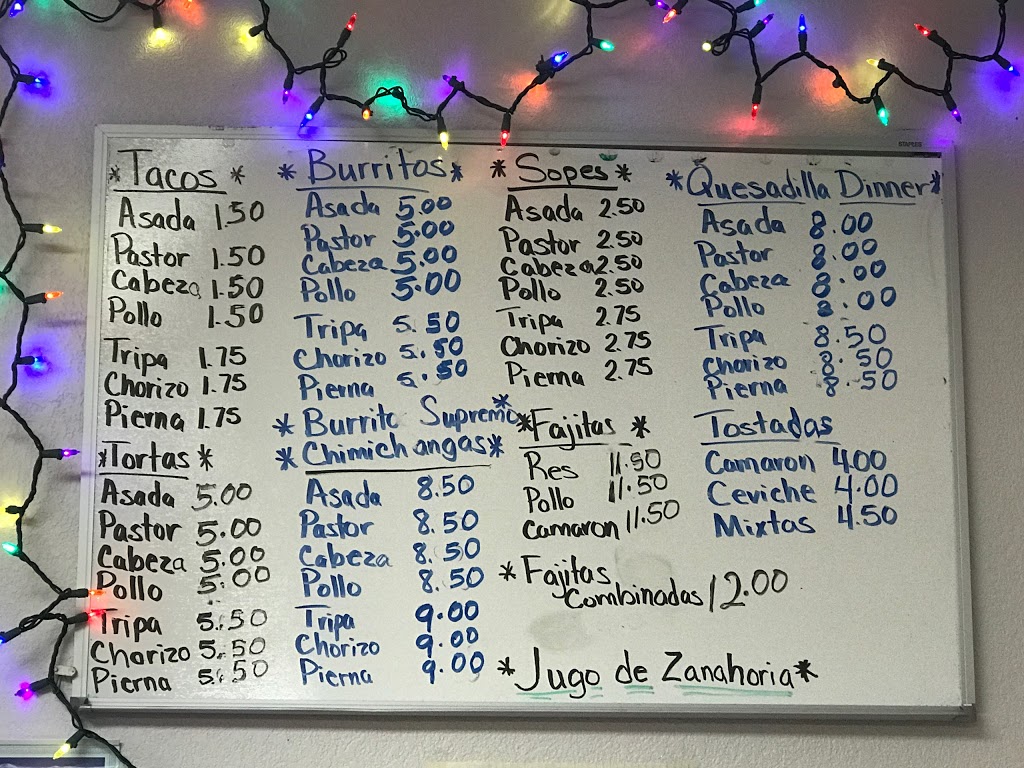 *Tacos*
Asada 1.50
Pastor 1.50
Cabeza 1.50
Pollo 1.50
Tripa 1.75
Chorizo 1.75
Pierna 1.75
*Tortas*
Asada 5.00
Pastor 5.00
Cabeza 5.00
Pollo 5.00
Tripa 5.50
Chorizo 5.50
Pierna 5.50
*Burritos*
Asada 5.00
Pastor 5.00
Cabeza 5.00
Pollo 5.00
Tripa 5.50
Chorizo 5.50
Pierna 5.50
*Burrito Supremo*
*Chimichangas*
Asada 8.50
Pastor 8.50
Cabeza 8.50
Pollo 8.50
Tripa 9.00
Chorizo 9.00
Pierna 9.00
*Sopes*
Asada 2.50
Pastor 2.50
Cabeza 2.50
Pollo 2.50
Tripa 2.75
Chorizo 2.75
Pierna 2.75
*Fajitas*
Res 11.50
Pollo 11.50
Camaron 11.50
*Fajitas
Combinadas 12.00
*Jugo de Zanahoria*
STAPLES
*Quesadilla Dinner*
Asada 8.00
Pastor 8.00
Cabeza 8.00
Pollo 8.00
Tripa 8.50
Chorizo 8.50
Pierna 8.50
Tostadas
Camaron 4.00
Ceviche 4.00
Mixtas 4.50